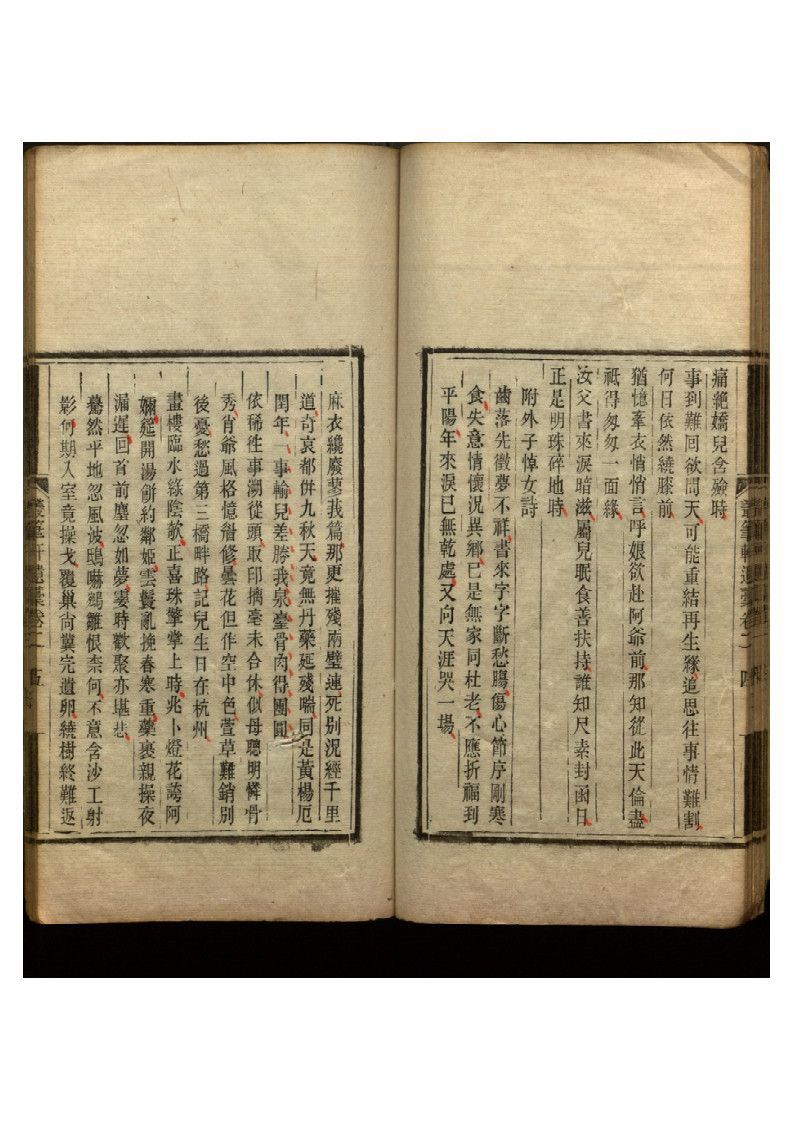 痛絕嬌兒含殮時
事到難回欲問天可能重結再生緣追思往事情難割
何日依然繞膝前
猶憶牽衣悄悄言呼娘欲赴阿爺前那知從此天倫盡
祗得匆匆一面緣
汝父書來淚暗滋屬兒眠食善扶持誰知尺素封函日
正是明珠碎地時
附外子悼女詩
齒落先徵夢不祥書來字字斷愁腸傷心節序剛寒
食失意情懷況異鄉已是無家同杜老不應折福到
平陽年來淚已無乾處又向天涯哭一場
麻衣纔廢蓼莪篇那更摧殘兩璧連死別況經千里
道奇哀都併九秋天竟無丹藥延殘喘同是黃楊厄
閏年一事輸兒差勝我泉臺骨肉得團圓
依稀往事溯從頭取印摛毫未合休似母聰明憐骨
秀肖爺風格憶眥修曇花但作空中色萱草難銷別
後憂愁過第三橋畔路記兒生日在杭州
畫樓臨水綠陰欹正喜珠擎掌上時兆卜燈花誇阿
嬭筵開湯餅約鄰姬雲鬟亂挽春寒重藥裹親操夜
漏遲回首前塵忽如夢霎時歡聚亦堪悲
驀然平地忽風波鴟嚇鵷雛恨柰何不意含沙工射
影何期入室竟操戈覆巢尚冀完遺卵繞樹終難返
筆軒遺藁卷二 五